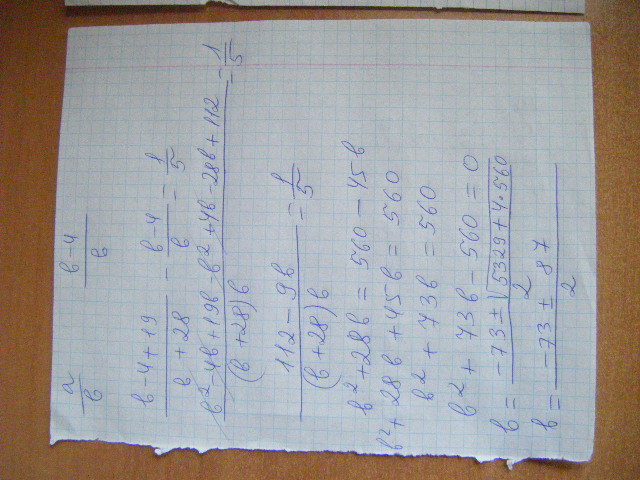 a/b (b-4)/b
(b-4+19)/(b+28) - (b-4)/b = 1/5
(b²-4b+19b-b²+4b-28b+112)/((b+28)b) = 1/5
(112-9b)/((b+28)b) = 1/5
b²+28b = 560-45b
b²+28b+45b = 560
b²+73b = 560
b²+73b-560 = 0
b = (-73±√(5329+4·560))/2
b = (-73±87)/2